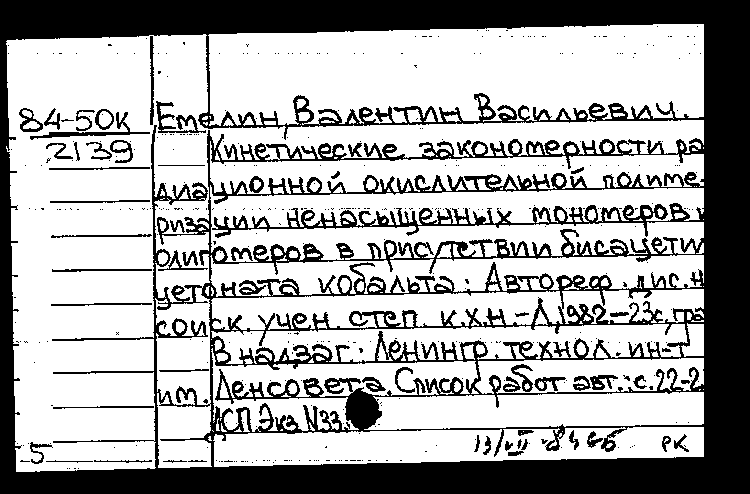 84-50к Емелин, Валентин Васильевич.
2139 Кинетические закономерности ра
диационной окислительной полиме-
ризации ненасыщенных мономеров и
олигомеров в присутствии бисацетил
цетоната кобальта: Автореф. дис. н
соиск. учен. степ. к.х.н.-Л, 1982.-23с, гра
В надзаг.: Ленингр. технол. ин-т
им. Ленсовета. Список работ авт.: с.22-2
ДСП. Экз N33.
5 13/VII-84 РК